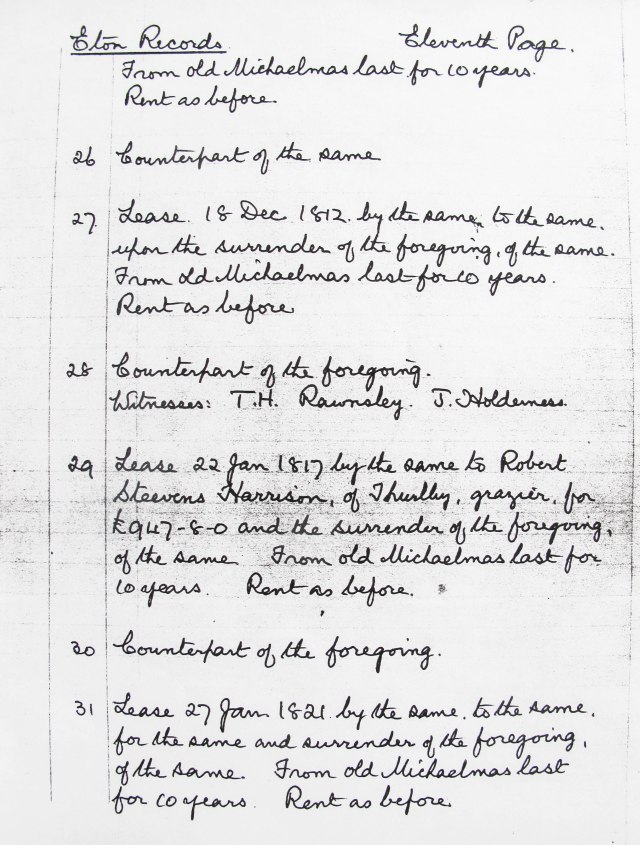 Eton Records. Eleventh Page.
From old Michaelmas last for 10 years.
Rent as before.
26 Counterpart of the same
27. Lease. 18 Dec 1812. by the same, to the same,
upon the surrender of the foregoing, of the same.
From old Michaelmas last for 10 years.
Rent as before
28 Counterpart of the foregoing.
Witnesses: T.H. Rawnsley. J. Holderness.
29 Lease 22 Jan 1817 by the same to Robert
Steevens Harrison, of Thurlby, grazier, for
£947-8-0 and the surrender of the foregoing,
of the same From old Michaelmas last for
10 years. Rent as before.
30 Counterpart of the foregoing.
31 Lease 27 Jan 1821 by the same, to the same,
for the same and surrender of the foregoing,
of the same. From old Michaelmas last
for 10 years. Rent as before